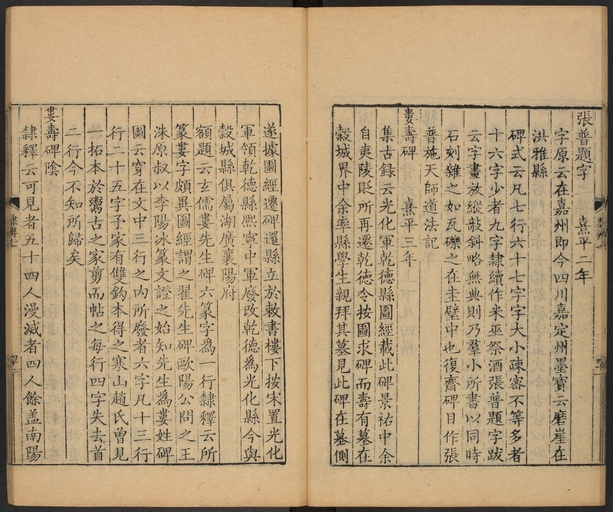 張普題字　熹平二年
字原云在嘉州即今四川嘉定州墨寶云磨崖在
洪雅縣
碑式云凡七行六十七字字大小疎密不等多者
十六字少者九字隸續作米巫祭酒張普題字跋
云字畫放縱欹斜略無典則乃羣小所書以同時
石刻雜之如瓦礫之在圭璧中也復齋碑目作張
普施天師道法記
婁壽碑　熹平三年
集古錄云光化軍乾德縣圖經載此碑景祐中余
自夷陵貶所再遷乾德令按圖求碑而壽有墓在
穀城界中余率縣學生親拜其墓見此碑在墓側
遂據圖經遷碑還縣立於敕書樓下按宋置光化
軍領乾德縣熙寧中軍廢改乾德為光化縣今與
穀城縣俱屬湖廣襄陽府
額題云玄儒婁先生碑六篆字為一行隸釋云所
篆婁字頗異圖經謂之翟先生碑歐陽公問之王
洙原叔以李陽冰篆文證之始知先生為婁姓碑
圖云穿在文中三行之內所廢者六字凡十三行
行二十五字予家有雙鈎本得之寒山趙氏曾見
一拓本於鬻古之家剪而帖之每行四字失去首
二行今不知所歸矣
婁壽碑陰
隸釋云可見者五十四人漫滅者四人餘盖南陽